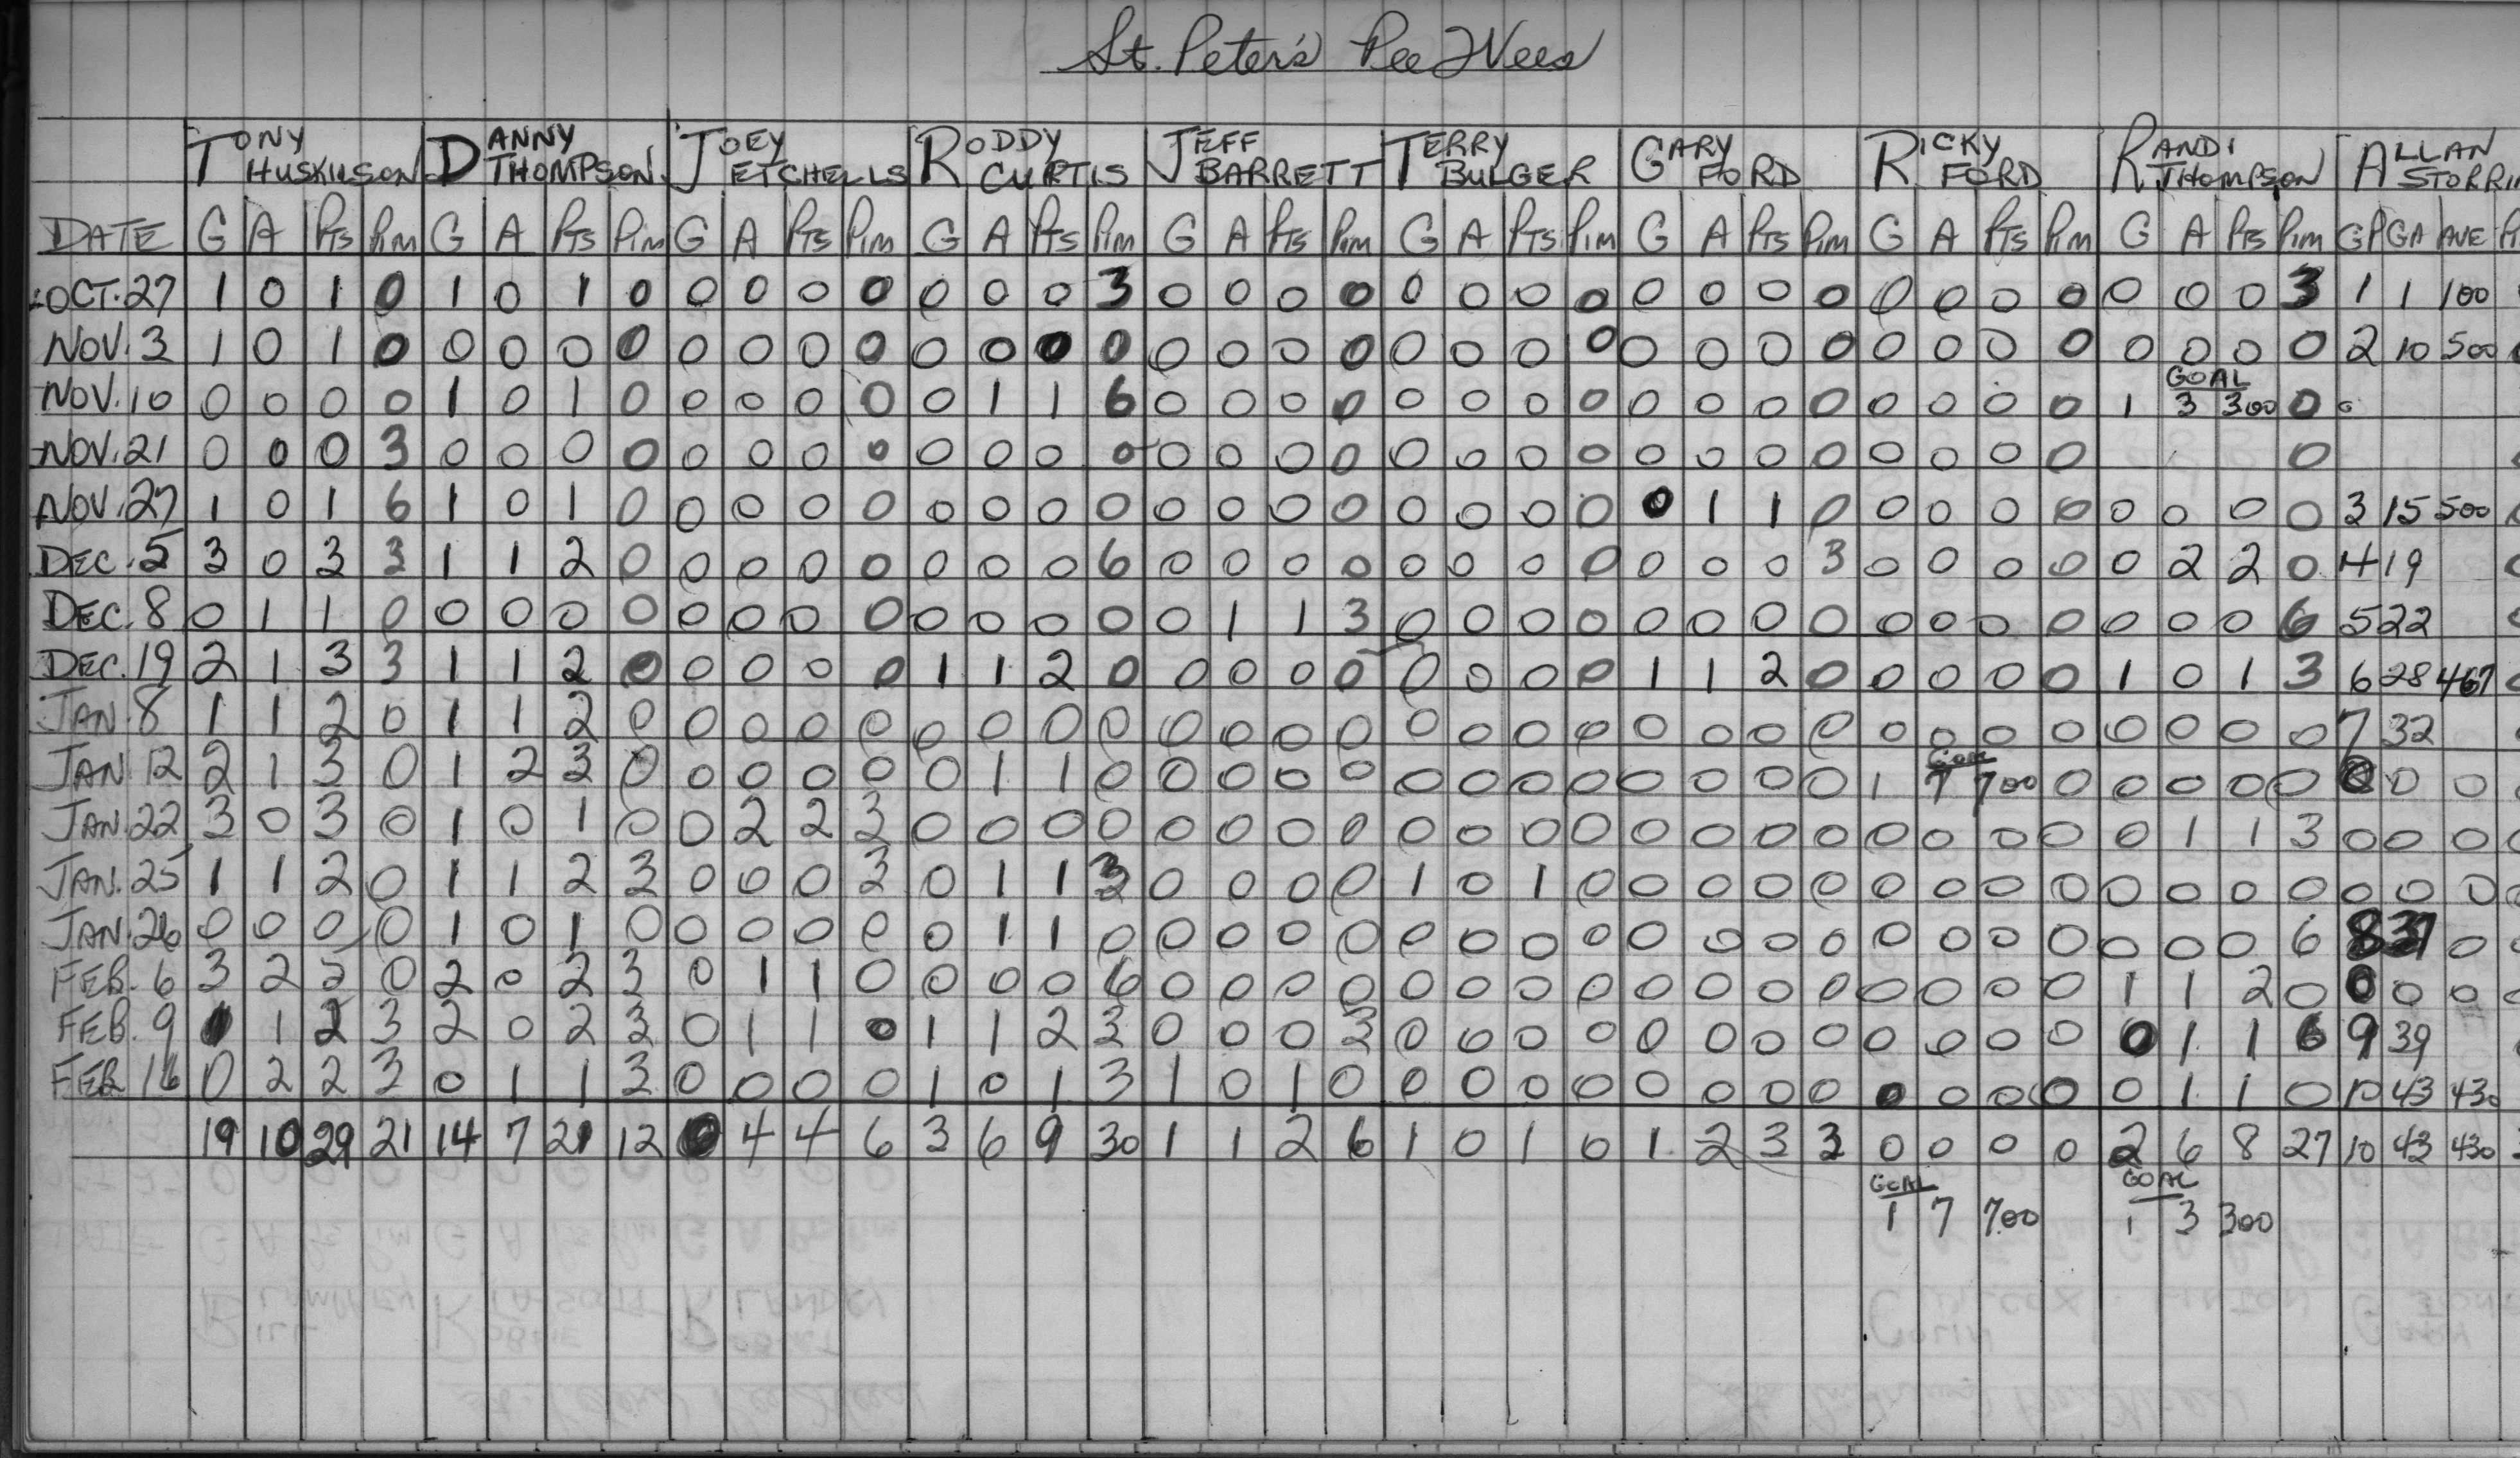 St. Peter's Pee Wees
TONY HUSKILSON DANNY THOMPSON JOEY ETCHELLS RODDY CURTIS JEFF BARRETT TERRY BULGER GARY FORD RICKY FORD RANDI THOMPSON ALLAN STORRIN
DATE G A Pts Pim G A Pts Pim G A Pts Pim G A Pts Pim G A Pts Pim G A Pts Pim G A Pts Pim G A Pts Pim G A Pts Pim GP GA AVE
OCT. 27 1 0 1 0 1 0 1 0 0 0 0 0 0 0 0 3 0 0 0 0 0 0 0 0 0 0 0 0 0 0 0 0 0 0 0 3 1 1 100
NOV. 3 1 0 1 0 0 0 0 0 0 0 0 0 0 0 0 0 0 0 0 0 0 0 0 0 0 0 0 0 0 0 0 0 0 0 0 0 2 10 500
GOAL
NOV. 10 0 0 0 0 1 0 1 0 0 0 0 0 0 1 1 6 0 0 0 0 0 0 0 0 0 0 0 0 0 0 0 0 1 3 300 0 0
NOV. 21 0 0 0 3 0 0 0 0 0 0 0 0 0 0 0 0 0 0 0 0 0 0 0 0 0 0 0 0 0 0 0 0 0
NOV. 27 1 0 1 6 1 0 1 0 0 0 0 0 0 0 0 0 0 0 0 0 0 0 0 0 0 1 1 0 0 0 0 0 0 0 0 0 3 15 500
DEC. 5 3 0 3 3 1 1 2 0 0 0 0 0 0 0 0 6 0 0 0 0 0 0 0 0 0 0 0 3 0 0 0 0 0 2 2 0 4 19
DEC. 8 0 1 1 0 0 0 0 0 0 0 0 0 0 0 0 0 0 1 1 3 0 0 0 0 0 0 0 0 0 0 0 0 0 0 0 6 5 22
DEC. 19 2 1 3 3 1 1 2 0 0 0 0 0 1 1 2 0 0 0 0 0 0 0 0 0 1 1 2 0 0 0 0 0 1 0 1 3 6 28 467
JAN. 8 1 1 2 0 1 1 2 0 0 0 0 0 0 0 0 0 0 0 0 0 0 0 0 0 0 0 0 0 0 0 0 0 0 0 0 0 7 32
GOAL
JAN. 12 2 1 3 0 1 2 3 0 0 0 0 0 0 1 1 0 0 0 0 0 0 0 0 0 0 0 0 0 1 7 700 0 0 0 0 0 0 0 0
JAN. 22 3 0 3 0 1 0 1 0 0 2 2 3 0 0 0 0 0 0 0 0 0 0 0 0 0 0 0 0 0 0 0 0 0 1 1 3 0 0 0
JAN. 25 1 1 2 0 1 1 2 3 0 0 0 3 0 1 1 3 0 0 0 0 1 0 1 0 0 0 0 0 0 0 0 0 0 0 0 0 0 0 0
JAN. 26 0 0 0 0 1 0 1 0 0 0 0 0 0 1 1 0 0 0 0 0 0 0 0 0 0 0 0 0 0 0 0 0 0 0 0 6 8 37 0
FEB. 6 3 2 5 0 2 0 2 3 0 1 1 0 0 0 0 6 0 0 0 0 0 0 0 0 0 0 0 0 0 0 0 0 1 1 2 0 0 0 0
FEB. 9 1 2 3 2 0 2 3 0 1 1 0 1 1 2 3 0 0 0 3 0 0 0 0 0 0 0 0 0 0 0 0 0 1 1 6 9 39
FEB. 16 0 2 2 3 0 1 1 3 0 0 0 0 1 0 1 3 1 0 1 0 0 0 0 0 0 0 0 0 0 0 0 0 0 1 1 0 10 43 430
19 10 29 21 14 7 21 12 0 4 4 6 3 6 9 30 1 1 2 6 1 0 1 0 1 2 3 3 0 0 0 0 2 6 8 27 10 43 430
GOAL GOAL
1 7 700 1 3 300